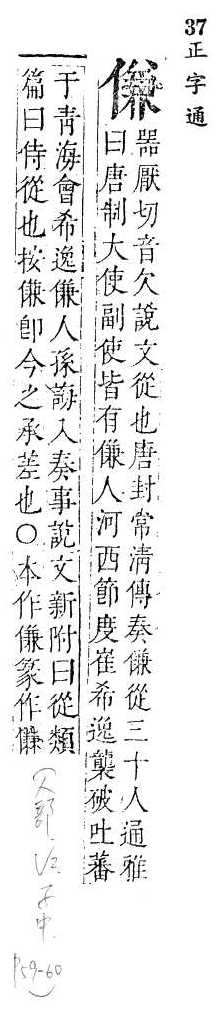 37正字通
傔
器厭切音欠說文從也唐封常清傳奏傔從三十人通雅
曰唐制大使副使皆有傔人河西節度崔希逸襲破吐蕃
于青海會希逸傔人孫誨入奏事說文新附曰從類
篇曰侍從也按傔卽今之承差也○本作傔篆作傔
(人部 子中
P59-60)